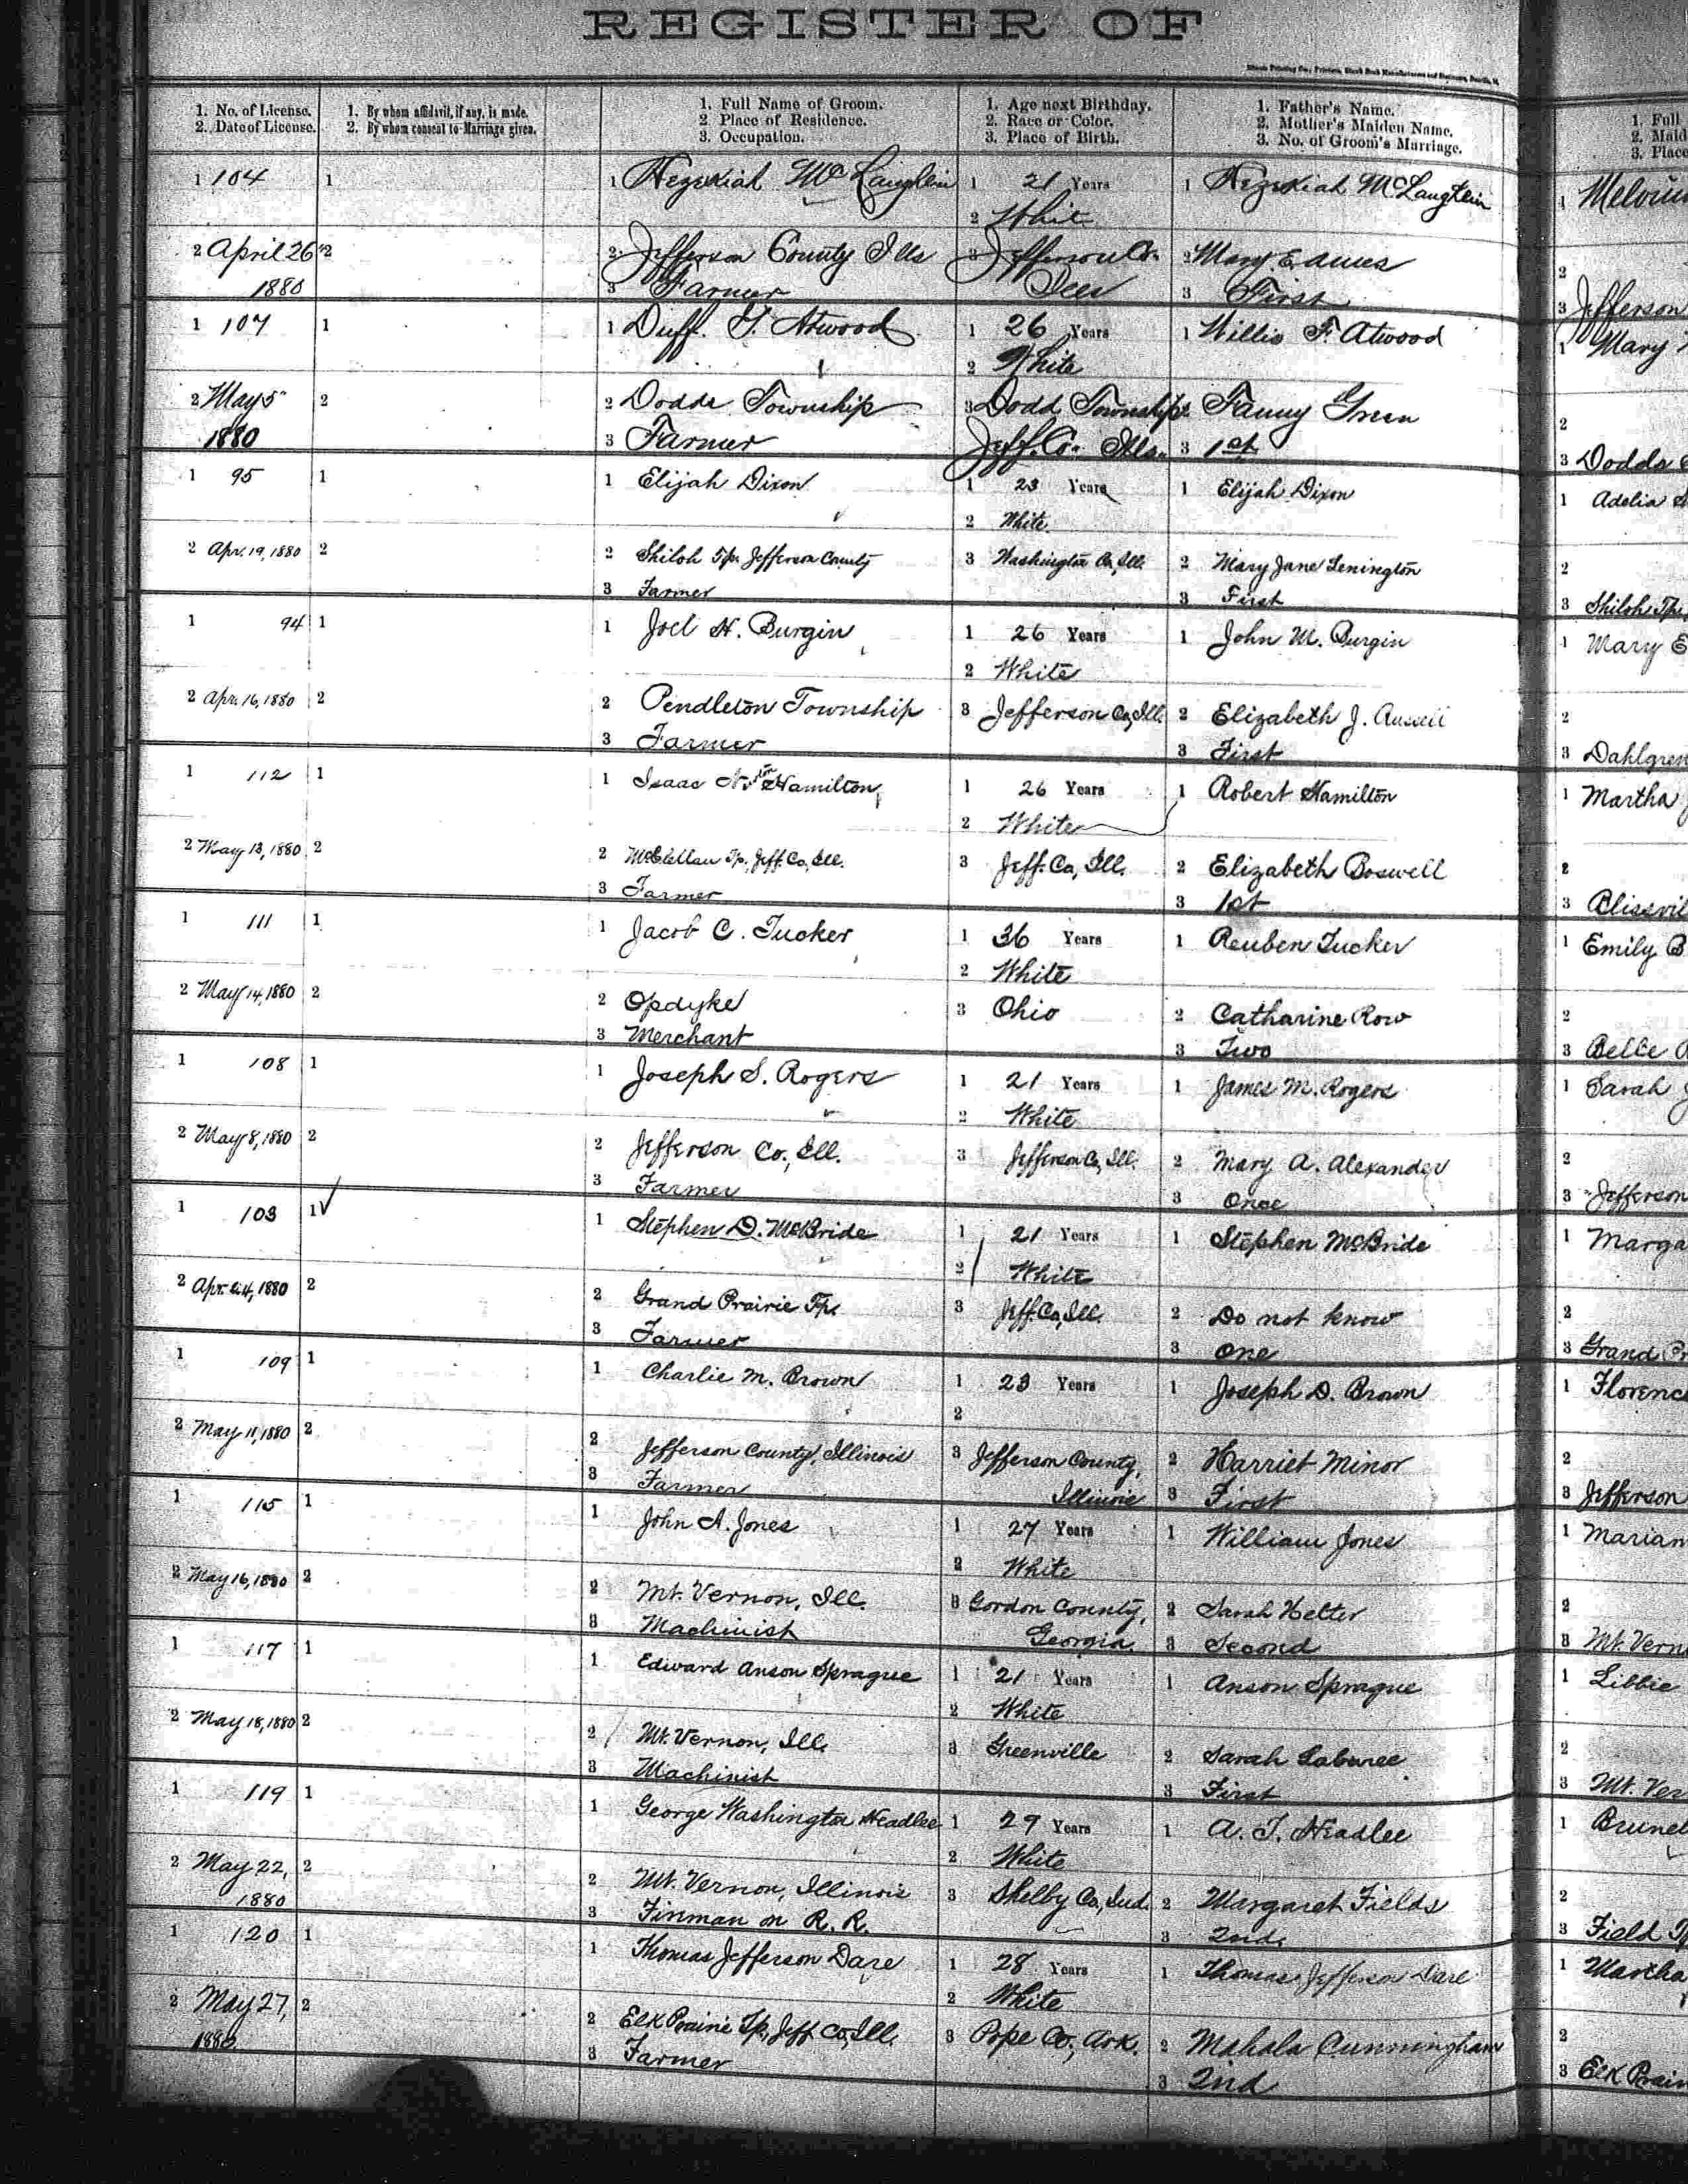 REGISTER OF
1. No. of License.
2. Date of License.
1. By whom affidavit, if any, is made.
2. By whom consent to Marriage given.
1. Full Name of Groom.
2. Place of Residence.
3. Occupation.
1. Age next Birthday.
2. Race or Color.
3. Place of Birth.
1. Father's Name.
2. Mother's Maiden Name.
3. No. of Groom's Marriage.
1. Full
2. Maid
3. Place
1 104 1 1 Hezekiah McLaughlin 1 21 Years 1 Hezekiah McLaughlin 1
2 Whit
2 April 26 2 2 Jefferson County Ills 3 Jefferson Co. 2 Mary 2
1880 3 Farmer 3 First 3 Jefferson
1 107 1 1 Duff. T. Atwood 1 26 Years 1 Willis F. Atwood 1 Mary
2 White
2 May 5 2 2 Dodds Township 3 Dodd Township 2 Fanny Green 2
1880 3 Farmer Jeff. Co. Ills. 3 1st 3 Dodds
1 95 1 1 Elijah Dixon 1 23 Years 1 Elijah Dixon 1 Adelia
2 White
2 Apr. 19, 1880 2 2 Shiloh Tp. Jefferson County 3 Washington Co, Ill. 2 Mary Jane Lenington 2
3 Farmer 3 First 3 Shiloh Tp.
1 94 1 1 Joel H. Burgin 1 26 Years 1 John M. Burgin 1 Mary E
2 White
2 Apr. 16, 1880 2 2 Pendleton Township 3 Jefferson Co, Ill. 2 Elizabeth J. 2
3 Farmer 3 First 3 Dahlgren
1 112 1 1 Isaac Hamilton 1 26 Years 1 Robert Hamilton 1 Martha
2 White
2 May 13, 1880 2 2 McClellan Tp., Jeff. Co, Ill. 3 Jeff. Co, Ill. 2 Elizabeth Boswell 2
3 Farmer 3 1st 3
1 111 1 1 Jacob C. Tucker 1 36 Years 1 Reuben Tucker 1 Emily B
2 White
2 May 14, 1880 2 2 Opdyke 3 Ohio 2 Catharine Row 2
3 Merchant 3 Two 3 Belle
1 108 1 1 Joseph S. Rogers 1 21 Years 1 James M. Rogers 1 Sarah
2 White
2 May 8, 1880 2 2 Jefferson Co., Ill. 3 Jefferson Co, Ill. 2 Mary A. Alexander 2
3 Farmer 3 Once 3 Jefferson
1 103 1 1 Stephen D. McBride 1 21 Years 1 Stephen McBride 1 Marga
2 White
2 Apr. 24, 1880 2 2 Grand Prairie Tp. 3 Jeff. Co, Ill. 2 Do not know 2
3 Farmer 3 One 3 Grand Pr
1 109 1 1 Charlie M. Brown 1 23 Years 1 Joseph D. Brown 1 Florence
2
2 May 11, 1880 2 2 Jefferson County, Illinois 3 Jefferson County, 2 Harriet Minor 2
3 Farmer Illinois 3 First 3 Jefferson
1 115 1 1 John A. Jones 1 27 Years 1 William Jones 1 Marian
2 White
2 May 16, 1880 2 2 Mt. Vernon, Ill. 3 Gordon County, 2 Sarah Helter 2
3 Machinist Georgia 3 Second 3 Mt. Vern
1 117 1 1 Edward Anson Sprague 1 21 Years 1 Anson Sprague 1 Libbie
2 White
2 May 18, 1880 2 2 Mt. Vernon, Ill. 3 Greenville 2 Sarah Labaree 2
3 Machinist 3 First 3 Mt. Ver
1 119 1 1 George Washington Headlee 1 29 Years 1 A. T. Headlee 1 Brunel
2 White
2 May 22, 2 2 Mt. Vernon, Illinois 3 Shelby Co, Ind. 2 Margaret Fields 2
1880 3 Finman on R. R. 3 2nd. 3 Field Tp
1 120 1 1 Thomas Jefferson Dare 1 28 Years 1 Thomas Jefferson Dare 1 Martha
2 White
2 May 27, 2 2 Elk Prairie Tp, Jeff Co, Ill. 3 Pope Co., Ark. 2 Mahala Cunningham 2
1880 3 Farmer 3 2nd 3 Elk Prair